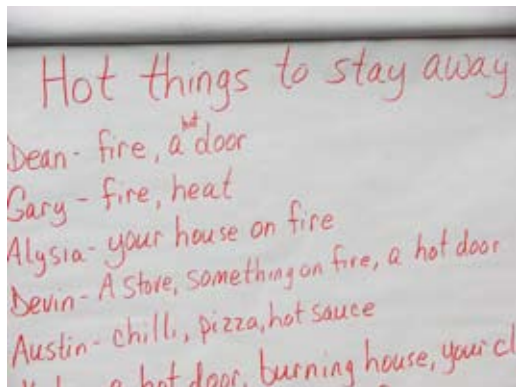 Hot things to stay away
Dean- fire, a hot door
Gary - fire, heat
Alysia- your house on fire
Devin- A stove, something on fire, a hot door
Austin- chilli, pizza, hot sauce
a hot door, burning house, your